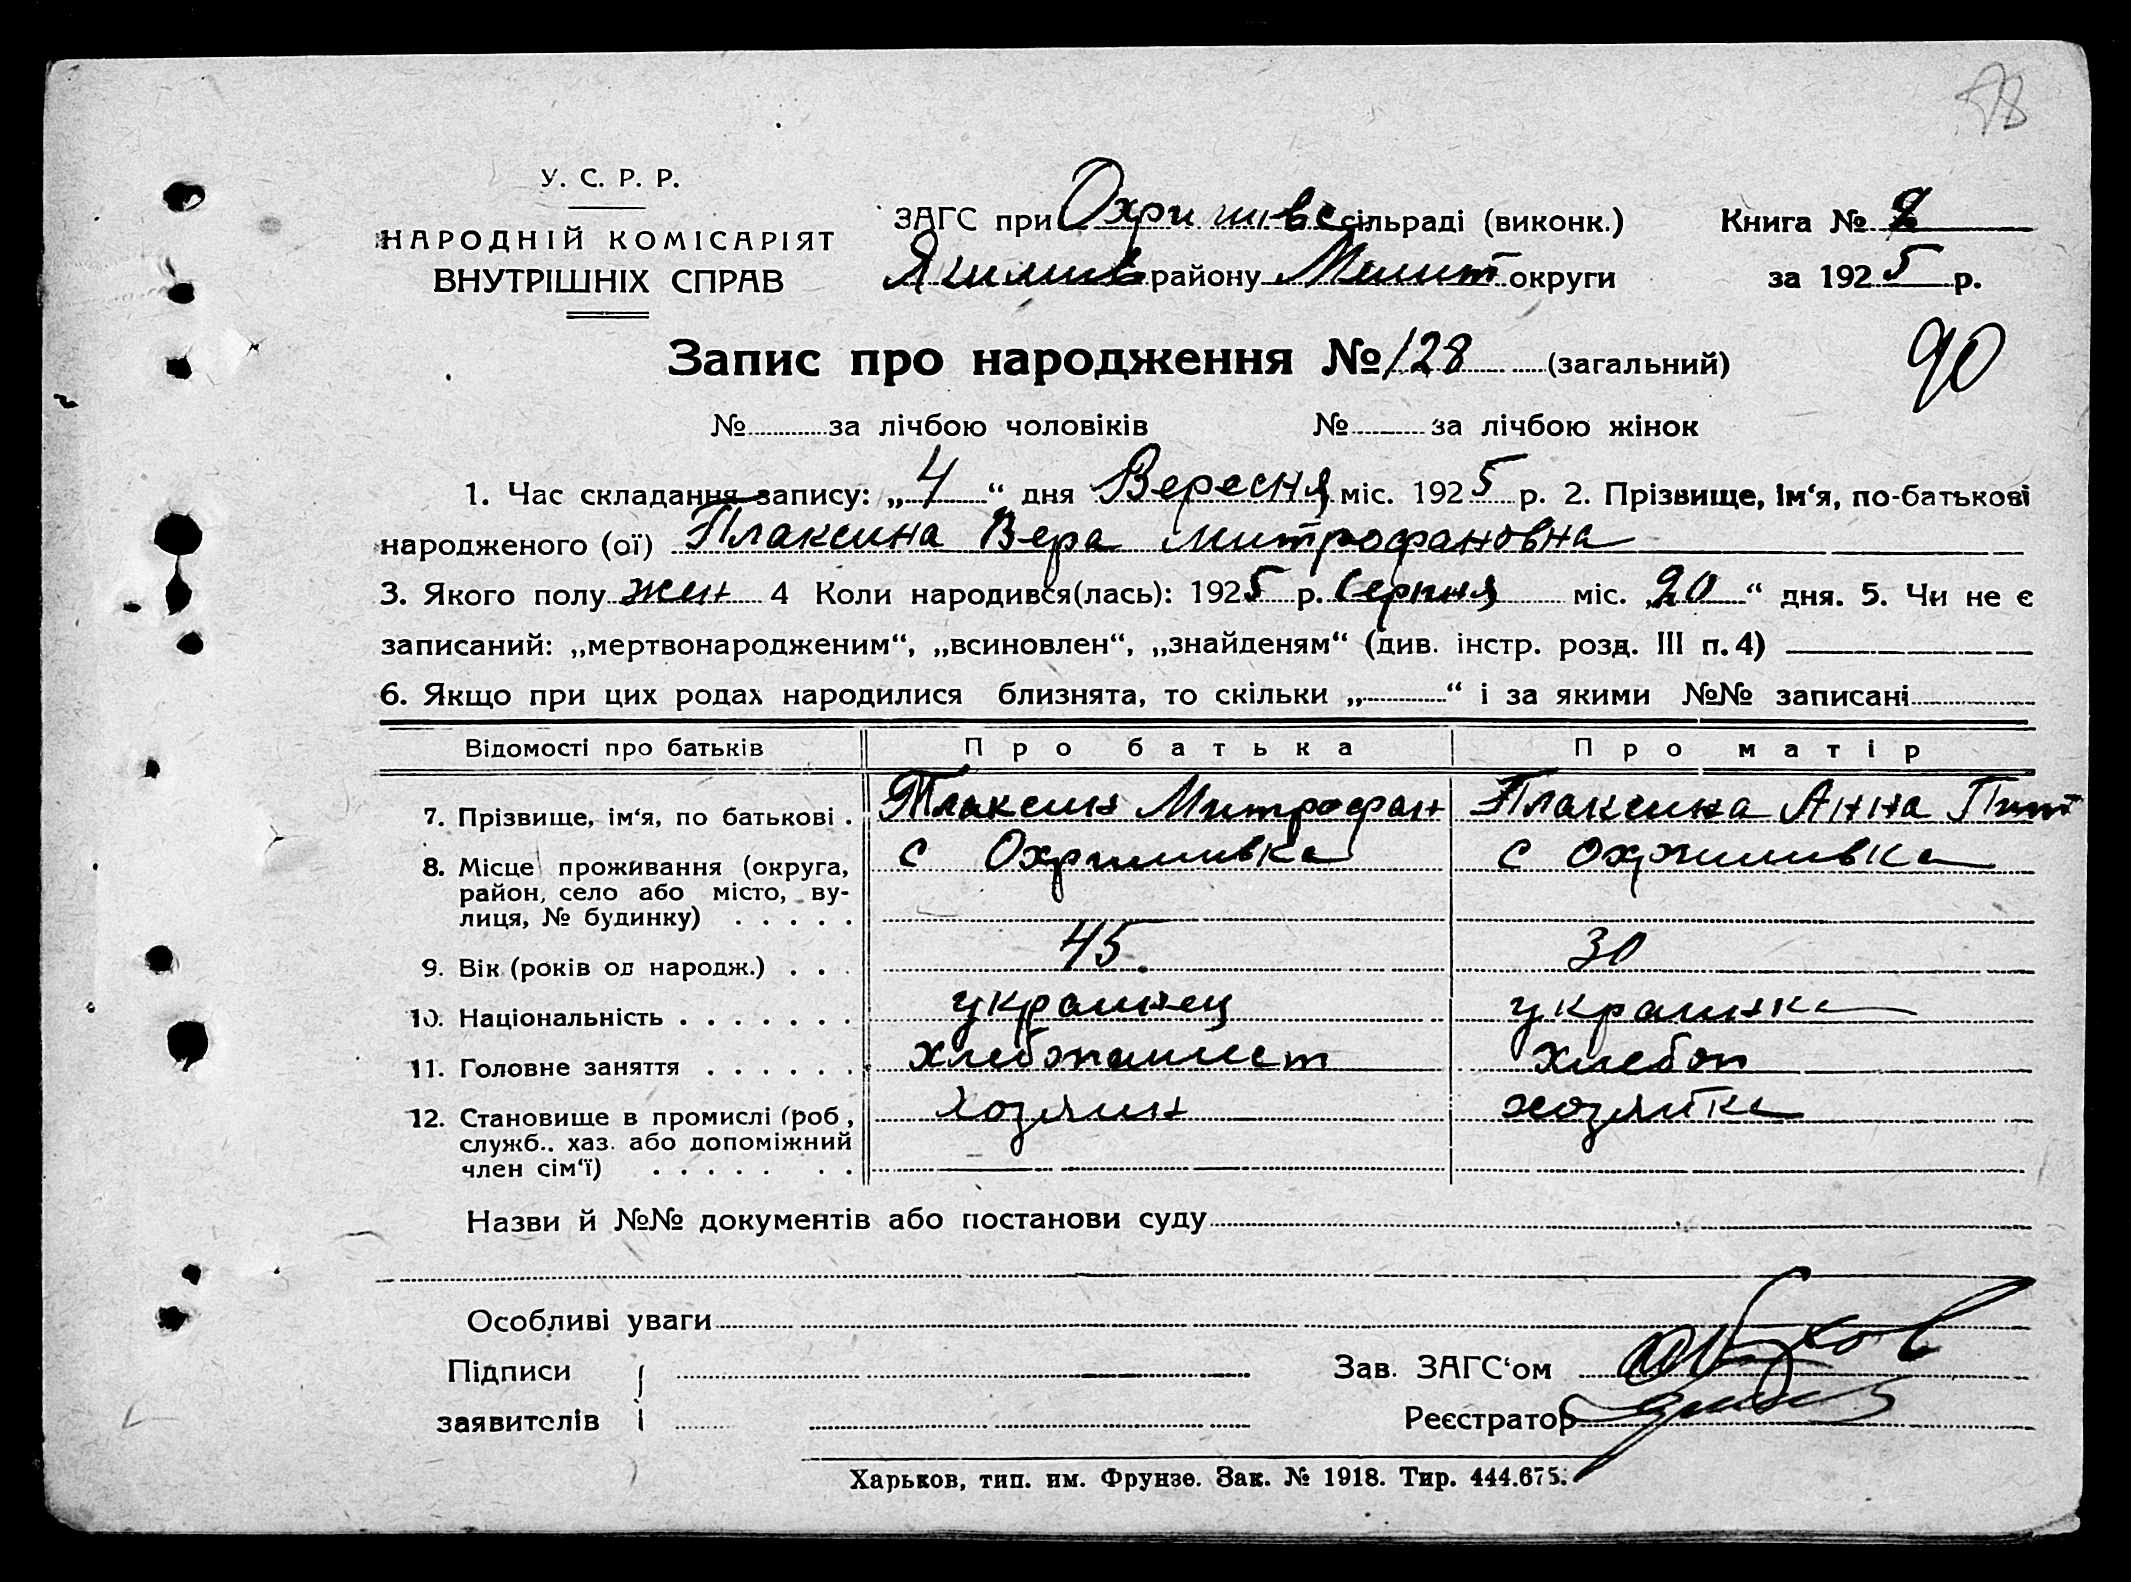 78
У. С. Р. Р.
НАРОДНІЙ КОМІСАРІЯТ
ВНУТРІШНІХ СПРАВ
ЗАГС при Охримивс сільраді (виконк.)
Якимив району Мелит округи
Книга №
за 1925 р.
Запис про народження № 128 (загальний)
90
№ за лічбою чоловіків № за лічбою жінок
1. Час складання запису: „4“ дня Вересня міс. 1925 р. 2. Прізвище, ім‘я, по-батькові
народженого (ої) Плаксина Вера Митрофановна
3. Якого полу жен 4 Коли народився(лась): 1925 р. Серпня міс. „20“ дня. 5. Чи не є
записаний: „мертвонародженим“, „всиновлен“, „знайденям“ (див. інстр. розд. III п. 4)
6. Якщо при цих родах народилися близнята, то скільки „ “ і за якими №№ записані
Відомості про батьків Про батька Про матір
7. Прізвище, ім‘я, по батькові . Плаксин Митрофан Плаксина Анна
8. Місце проживання (округа, с Охримивка с Охримивка
район, село або місто, ву-
лиця, № будинку) . . . . .
9. Вік (років од народж.) . . . 45 30
10. Національність . . . . . . . украинец украинка
11. Головне заняття . . . . . . хлебопашест хлебоп
12. Становище в промислі (роб., хозяин хозяйка
служб., хаз. або допоміжний
член сім‘ї) . . . . . . .
Назви й №№ документів або постанови суду
Особливі уваги
Підписи
заявителів
Зав. ЗАГС‘ом
Реєстратор
Харьков, тип. им. Фрунзе. Зак. № 1918. Тир. 444.675.